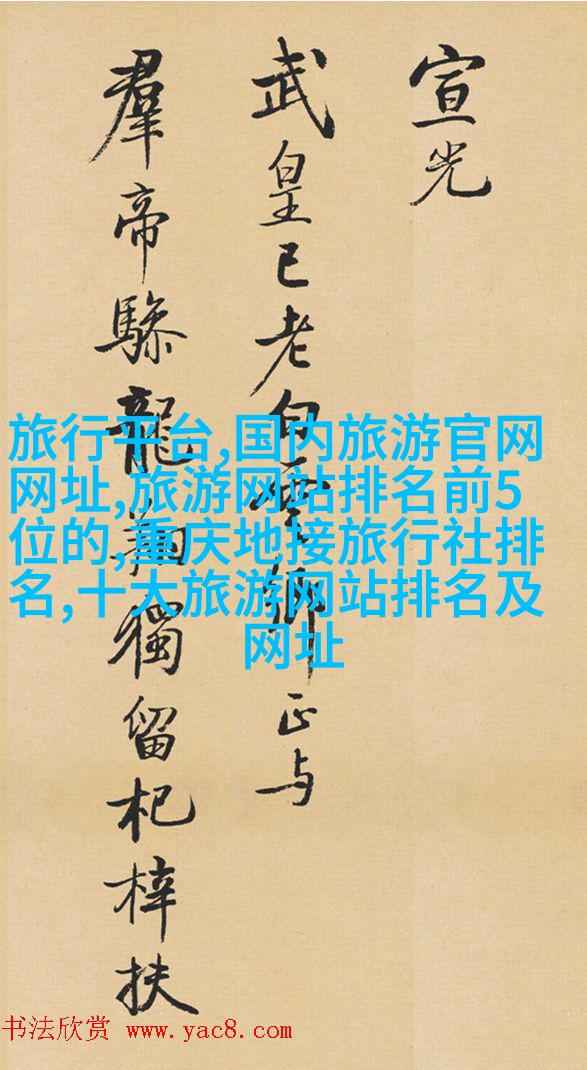 宣光
武皇已老白雲鄉正与
羣帝驂龍翔獨留杞梓扶
旅行平台,国内旅游官网
网址,旅游网站排名前5
位的,重庆地接旅行社排
名,十大旅游网站排名及
网址
书法欣赏 www.yac8.com